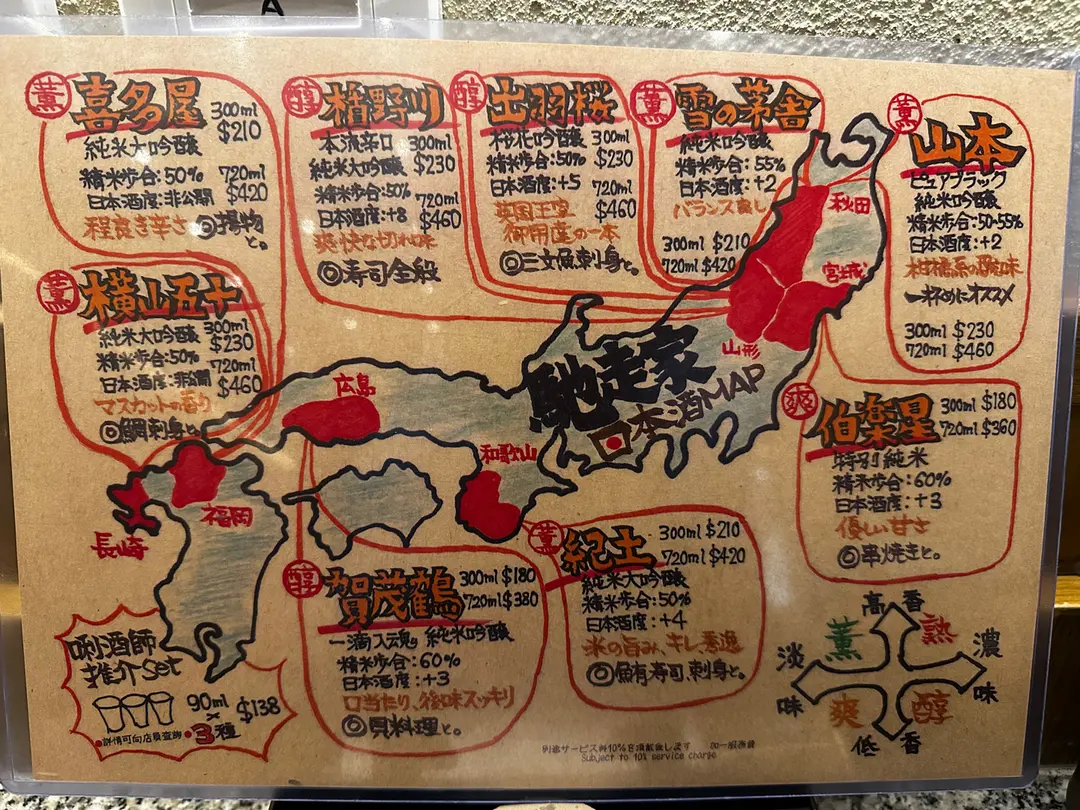 A
薫 喜多屋
300ml $210
純米大吟醸
精米歩合:50%
720ml $420
日本酒度:非公開
程良き辛さ ◎揚物と。
醇 楯野川
本流辛口
300ml $230
純米大吟醸
精米歩合:50%
720ml $460
日本酒度:+8
爽快な切れ味
◎寿司全般
醇 出羽桜
桜花吟醸
300ml $230
精米歩合:50%
日本酒度:+5
720ml $460
英国王室
御用達の一本
◎三文魚刺身と。
薫 雪の茅舎
純米吟醸
精米歩合:55%
日本酒度:+2
バランス良し
300ml $210
720ml $420
薫 山本
ピュアブラック
純米吟醸
精米歩合:50-55%
日本酒度:+2
柑橘系の酸味
一杯めにオススメ
300ml $230
720ml $460
薫 横山五十
純米大吟醸
300ml $230
精米歩合:50%
720ml $460
日本酒度:非公開
マスカットの香り
◎鯛刺身と。
秋田
宮城
山形
広島
和歌山
福岡
長崎
馳走家
日本酒MAP
爽 伯楽星
300ml $180
720ml $360
特別純米
精米歩合:60%
日本酒度:+3
優しい甘さ
◎串焼きと。
醇 賀茂鶴
300ml $180
720ml $380
一滴入魂 純米吟醸
精米歩合:60%
日本酒度:+3
口当たり、後味スッキリ
◎貝料理と。
薫 紀土
300ml $210
720ml $420
純米大吟醸
精米歩合:50%
日本酒度:+4
米の旨み、キレ
◎魚有寿司、刺身と。
唎酒師
推介set
90ml × 3種 $138
詳情可向店員查詢
高香
薫 熟
淡味 濃味
爽 醇
低香
別途サービス料10%を頂戴致します
Subject to 10% service charge